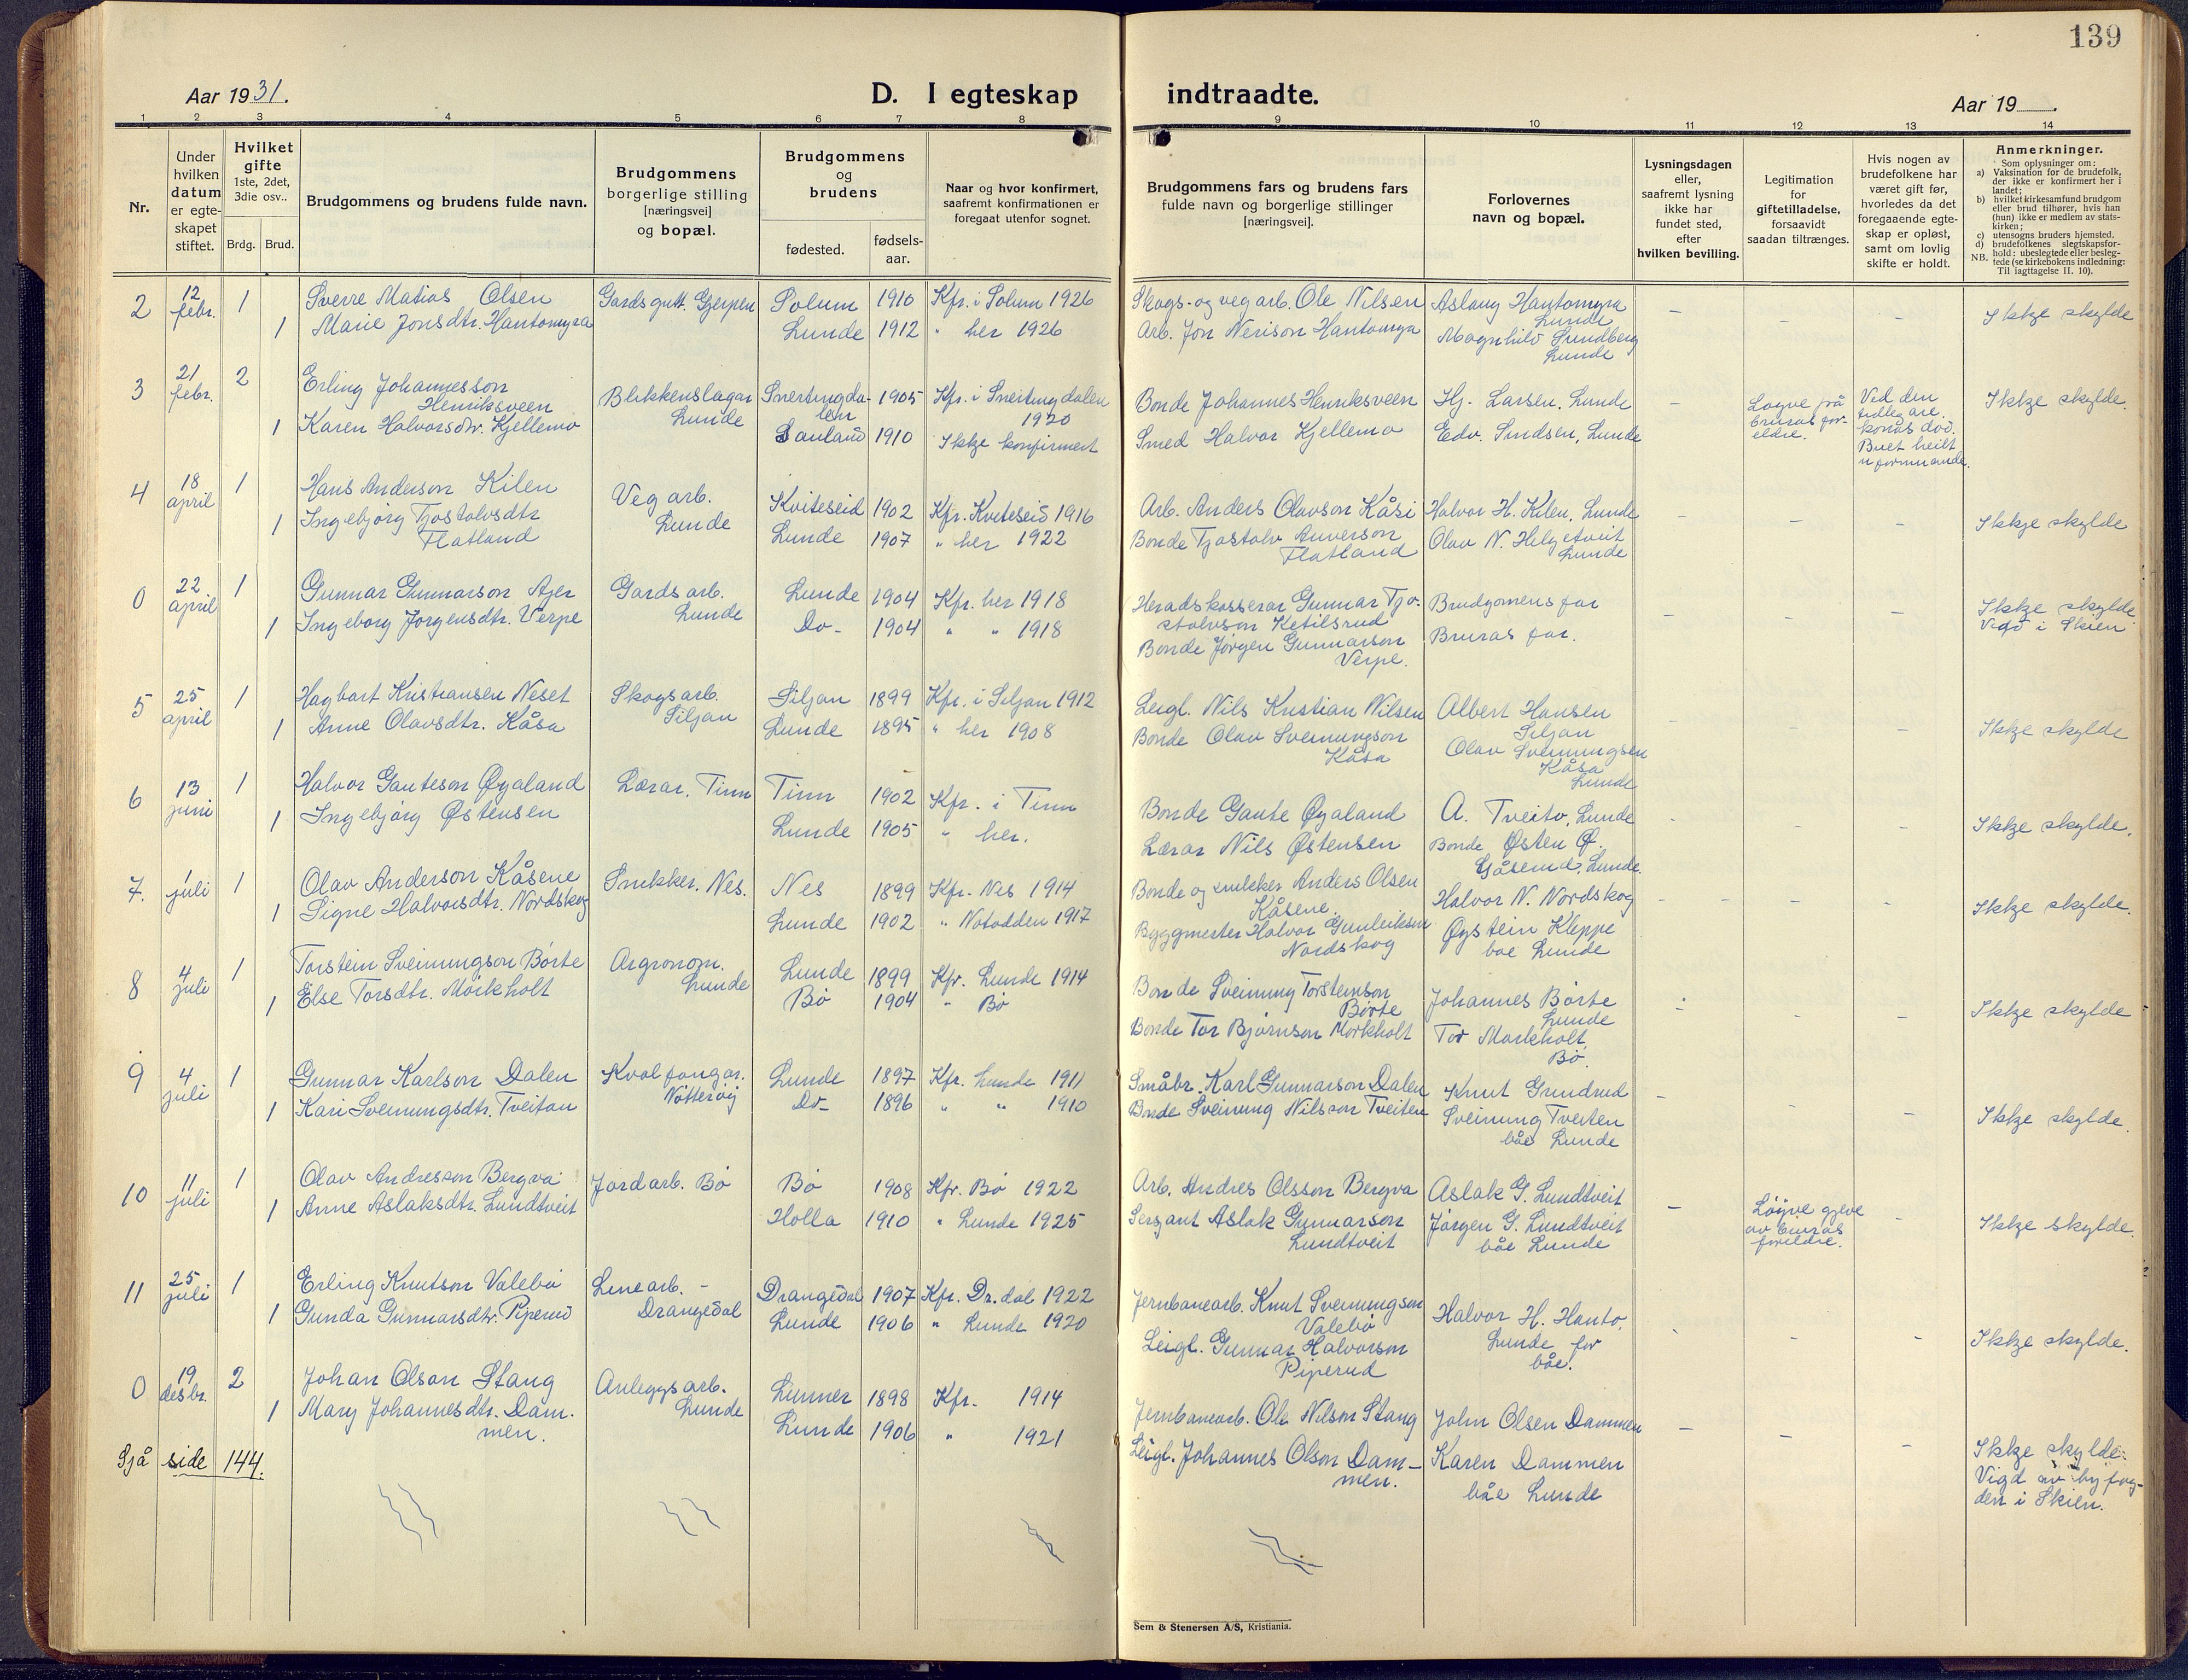 139
Aar 1931.
D. I egteskap indtraadte.
Aar 19
1 2 3 4 5 6 7 8 9 10 11 12 13 14
Nr.
Under
hvilken
datum
er egte-
skapet
stiftet.
Hvilket
gifte
1ste, 2det,
3die osv..
Brdg. Brud.
Brudgommens og brudens fulde navn.
Brudgommens
borgerlige stilling
[næringsvei]
og bopæl.
Brudgommens
og
brudens
fødested.
fødsels-
aar.
Naar og hvor konfirmert,
saafremt konfirmationen er
foregaat utenfor sognet.
Brudgommens fars og brudens fars
fulde navn og borgerlige stillinger
[næringsvei].
Forlovernes
navn og bopæl.
Lysningsdagen
eller,
saafremt lysning
ikke har
fundet sted,
efter
hvilken bevilling.
Legitimation
for
giftetilladelse,
forsaavidt
saadan tiltrænges.
Hvis nogen av
brudefolkene har
været gift før,
hvorledes da det
foregaaende egte-
skap er opløst,
samt om lovlig
skifte er holdt.
Anmerkninger.
Som oplysninger om:
a) Vaksination for de brudefolk,
der ikke er konfirmert her i
landet;
b) hvilket kirkesamfund brudgom
eller brud tilhører, hvis han
(hun) ikke er medlem av stats-
kirken;
c) utensogns bruders hjemsted.
d) brudefolkenes slegtskapsfor-
hold: ubeslegtede eller besleg-
NB. tede (se kirkebokens indledning:
Til iagttagelse II. 10).
2 12 febr. 1 Sverre Matias Olsen Gardsgutt. Gjerpen Solum 1910 Kfr. i Solum 1926 Skogs- og vegarb. Ole Nilsen Aslaug Hantomyra
Lunde
1 Marie Jonsdtr. Hantomyra Lunde 1912 " her 1926 Arb. Jon Nerison Hantomyra Magnhild Sundberg
Lunde
– – – Ikkje skylde
3 21 febr. 2 Erling Johannesson
Henriksveen Blikkenslagar
Lunde Snertingda-
len 1905 Kfr. i Snertingdalen
1920 Bonde Johannes Henriksveen Hj. Larsen. Lunde
1 Karen Halvorsdtr. Kjellemo Sauland 1910 Ikkje konfirmert Smed Halvor Kjellemo Edv. Sundsen, Lunde
– Løyve frå
bruras for-
eldre. Ved den
tidlegare
konas død.
Buet heilt
uformuande. Ikkje skylde.
4 18 april 1 Hans Anderson Kilen Vegarb.
Lunde Kviteseid 1902 Kfr. Kviteseid 1916 Arb. Anders Olavson Kåsi Halvor H. Kilen, Lunde
1 Ingebjørg Tjostolvsdtr
Flatland Lunde 1907 " her 1922 Bonde Tjostolv Anverson
Flatland Olav N. Helgetveit
Lunde
– – – Ikkje skylde
0 22 april 1 Gunnar Gunnarson Ajer Gardsarb.
Lunde Lunde 1904 Kfr. her 1918 Heradskasserar Gunnar Tjo-
stolvson Ketilsrud Brudgomens far
1 Ingeborg Jørgensdtr. Verpe Do- 1904 " " 1918 Bonde Jørgen Gunnarson
Verpe. Bruras far.
– – – Ikkje skylde
Vigd i Skien
5 25 april 1 Hagbart Kristiansen Neset Skogsarb.
Siljan Siljan 1899 Kfr. i Siljan 1912 Leigl. Nils Kristian Nilsen Albert Hansen
Siljan
1 Anne Olavsdtr. Kåsa Lunde 1895 " her 1908 Bonde Olav Sveinungson
Kåsa Olav Sveinungsen
Kåsa
Lunde
– – – Ikkje skylde
6 13 juni 1 Halvor Gauteson Øygaland Lærar. Tinn Tinn 1902 Kfr. i Tinn Bonde Gaute Øygaland A. Tveito, Lunde
1 Ingebjørg Østensen Lunde 1905 " her. Lærar Nils Østensen Bonde Østen Ø.
Gåserud, Lunde.
– – – Ikkje skylde.
7. 1 juli 1 Olav Anderson Kåsene Snekker. Nes. Nes 1899 Kfr. Nes 1914 Bonde og snekker Anders Olsen
Kåsene Halvor N. Nordskog
1 Signe Halvorsdtr. Nordskog Lunde 1902 " Notodden 1917 Byggmester Halvor Gunleiksen
Nordskog Øystein Kleppe
båe Lunde
– – – Ikkje skylde.
8 4 juli 1 Torstein Sveinungson Børte Argronom.
Lunde Lunde 1899 Kfr. Lunde 1914 Bonde Sveinung Torsteinson
Børte Johannes Børte
Lunde
1 Else Torsdtr. Mørkholt Bø 1904 " Bø Bonde Tor Bjørnson Mørkholt Tor Mørkholt
Bø.
– – – Ikkje skylde
9 4 juli 1 Gunnar Karlson Dalen Kvalfangar.
Nøtterøy Lunde 1897 Kfr. Lunde 1911 Småbr. Karl Gunnarson Dalen Knut Grundrud
1 Kari Sveinungsdtr. Tveitan Do- 1896 " " 1910 Bonde Sveinung Nilsson Tveiten Sveinung Tveiten
båe Lunde
– – – Ikkje skylde.
10 11 juli 1 Olav Andresson Bergva Jordarb. Bø Bø 1908 Kfr. Bø 1922 Arb. Andres Olsson Bergva Aslak G. Lundtveit
1 Anne Aslaksdtr. Lundtveit Holla 1910 " Lunde 1925 Sersjant Aslak Gunnarson
Lundtveit Jørgen G. Lundtveit
båe Lunde
– Løyve gjeve
av bruras
foreldre. – Ikkje skylde.
11 25 juli 1 Erling Knutson Valebø Linearb. -
Drangedal Drangedal 1907 Kfr. Dr.dal 1922 Jernbanearb. Knut Sveinungson
Valebø Halvor H. Hanto,
1 Gunda Gunnarsdtr. Piperud Lunde 1906 " Lunde 1920 Leigl. Gunnar Halvorson
Piperud Lunde for
båe.
– – – Ikkje skylde.
0 19 desbr. 2 Johan Olson Stang Anleggsarb.
Lunde Lunner 1898 Kfr. 1914 Jernbanearb. Ole Nilson Stang John Olsen Dammen
1 Mary Johannesdtr. Dam-
men. Lunde 1906 " 1921 Leigl. Johannes Olson Dam-
men. Karen Dammen
båe Lunde
– – – Ikkje skylde.
Vigd av byfog-
den i Skien.
Sjå side 144.
Sem & Stenersen A/S, Kristiania.